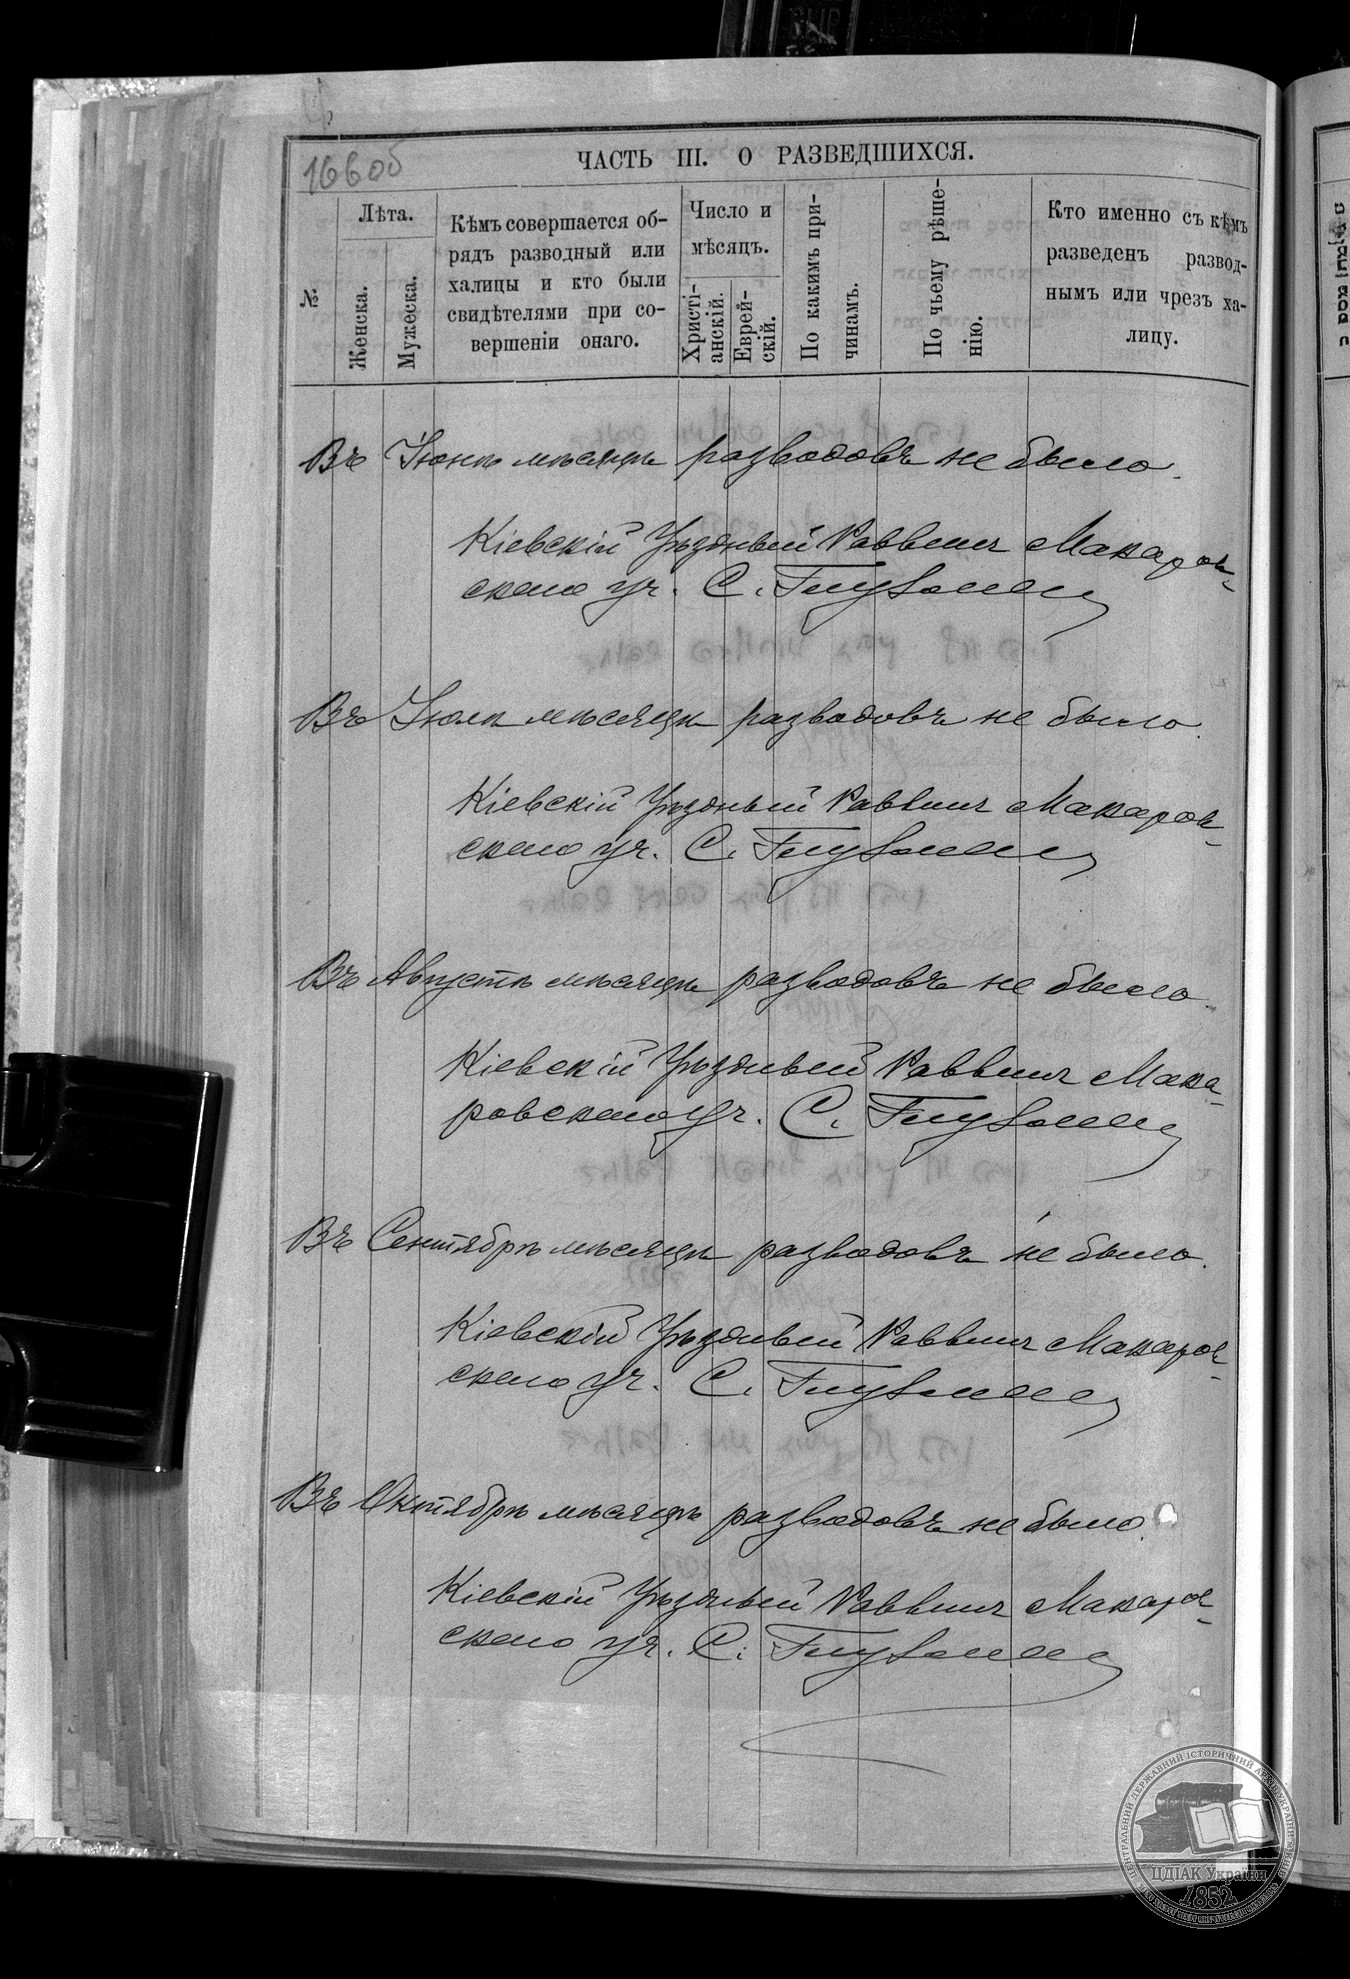 166об
ЧАСТЬ III. О РАЗВЕДШИХСЯ.
№
Лѣта.
Женска.
Мужеска.
Кѣмъ совершается об-
рядъ разводный или
халицы и кто были
свидѣтелями при со-
вершеніи онаго.
Число и
мѣсяцъ.
Христі-
анскій.
Еврей-
скій.
По какимъ при-
чинамъ.
По чьему рѣше-
нію.
Кто именно съ кѣмъ
разведенъ развод-
нымъ или чрезъ ха-
лицу.
Въ Іюнѣ мѣсяцѣ разводовъ не было.
Кіевскій Уѣздный Раввинъ Макаров-
скаго уч. С.
Въ Іюлѣ мѣсяцѣ разводовъ не было.
Кіевскій Уѣздный Раввинъ Макаров-
скаго уч. С.
Въ Августѣ мѣсяцѣ разводовъ не было.
Кіевскій Уѣздный Раввинъ Мака-
ровскаго уч. С.
Въ Сентябрѣ мѣсяцѣ разводовъ не было.
Кіевскій Уѣздный Раввинъ Макаров-
скаго уч. С.
Въ Октябрѣ мѣсяцѣ разводовъ не было.
Кіевскій Уѣздный Раввинъ Макаров-
скаго уч. С.
ЦЕНТРАЛЬНИЙ ДЕРЖАВНИЙ ІСТОРИЧНИЙ АРХІВ УКРАЇНИ
ЦДІАК України
1852